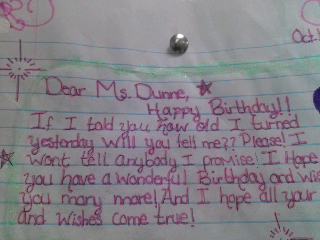 Oct.
Dear Ms. Dunne,
Happy Birthday!!
If I told you how old I turned
yesterday will you tell me?? Please! I
wont tell anybody I promise! I Hope
you have a wonderful Birthday and wis
you many more! And I hope all your
and wishes come true!